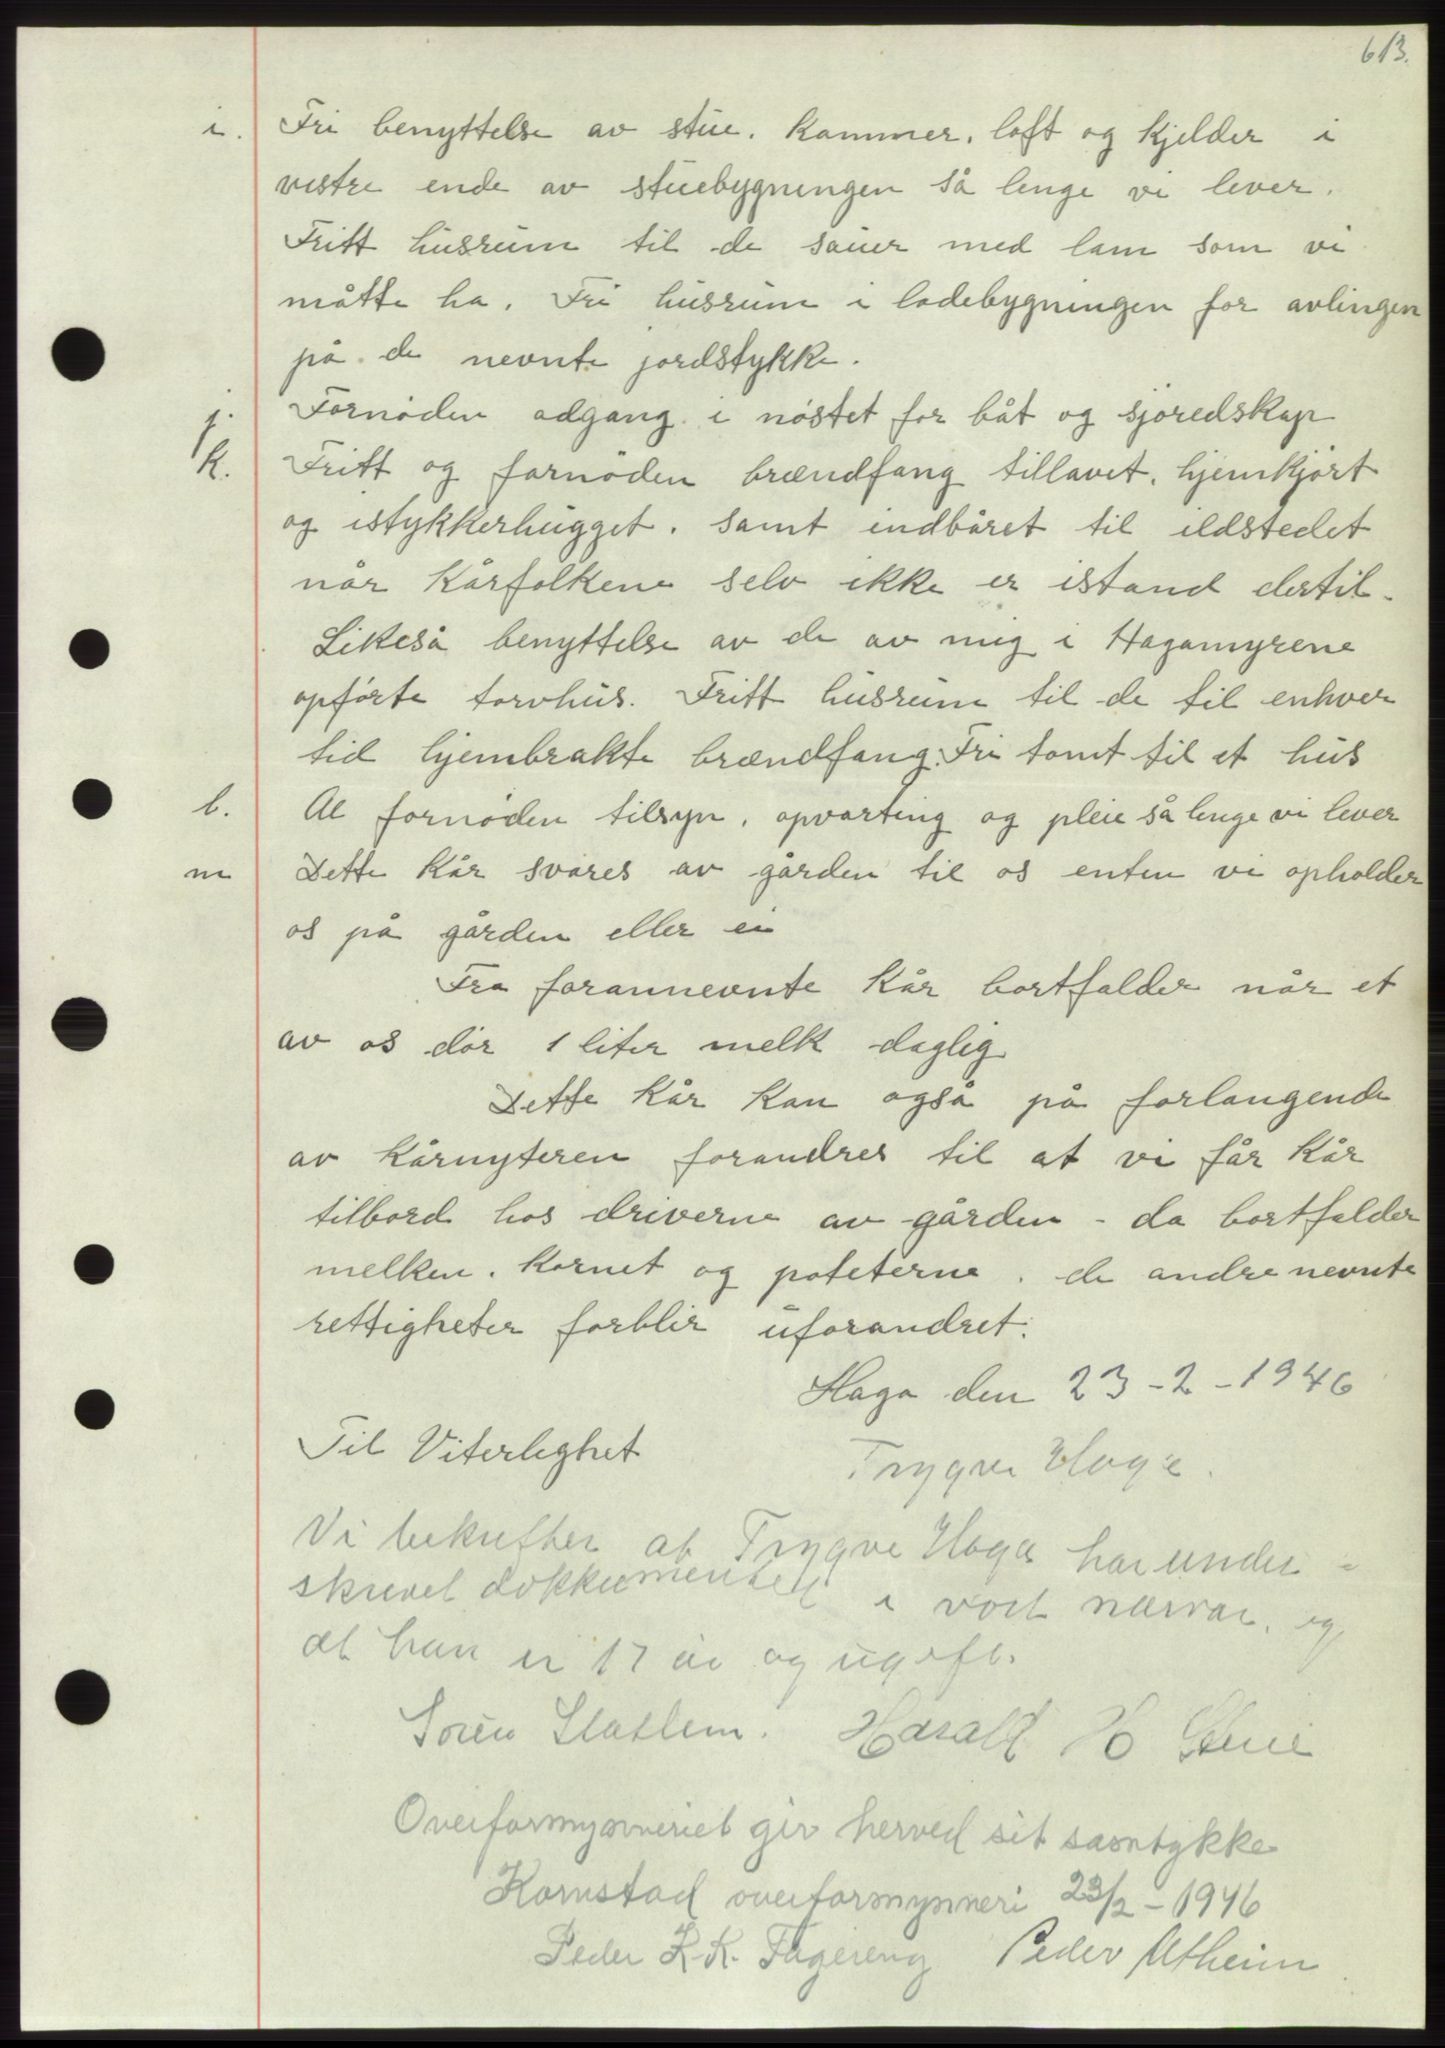 613.
i. Fri benyttelse av stue. kammer. loft og kjelder i
vestre ende av stuebygningen så lenge vi lever.
Fritt husrum til de sauer med lam som vi
måtte ha. Fri husrum i ladebygningen for avlingen
på de nevnte jordstykke.
j. Fornøden adgang i nøstet for båt og sjøredskap
k. Fritt og fornøden brændfang tillavet. hjemkjørt
og istykkerhugget. samt indbåret til ildstedet
når kårfolkene selv ikke er istand dertil.
Likeså benyttelse av de av mig i Hagamyrene
opførte torvhus. Fritt husrum til de til enhver
tid hjembrakte brændfang. Fri tomt til et hus
l. Al fornøden tilsyn. opvarting og pleie så lenge vi lever
m Dette kår svares av gården til os enten vi opholder
os på gården eller ei
Fra forannevnte kår bortfalder når et
av os dør 1 liter melk daglig
Dette kår kan også på forlangende
av kårnyteren forandres til at vi får kår
tilbord hos driverne av gården - da bortfalder
melken. kornet og poteterne. de andre nevnte
rettigheter forblir uforandret.
Haga den 23-2-1946
Til Viterlighet
Trygve Haga.
Vi bekrefter at Trygve Haga har under-
skrevet dokkumentet i vort nærvær, og
at han er 17 år og ugift.
Søren Slatlem. Harald H
Overformynneriet gir herved sit samtykke
Kornstad overformynneri 23/2-1946
Peder K. K. Fagereng Peder Utheim